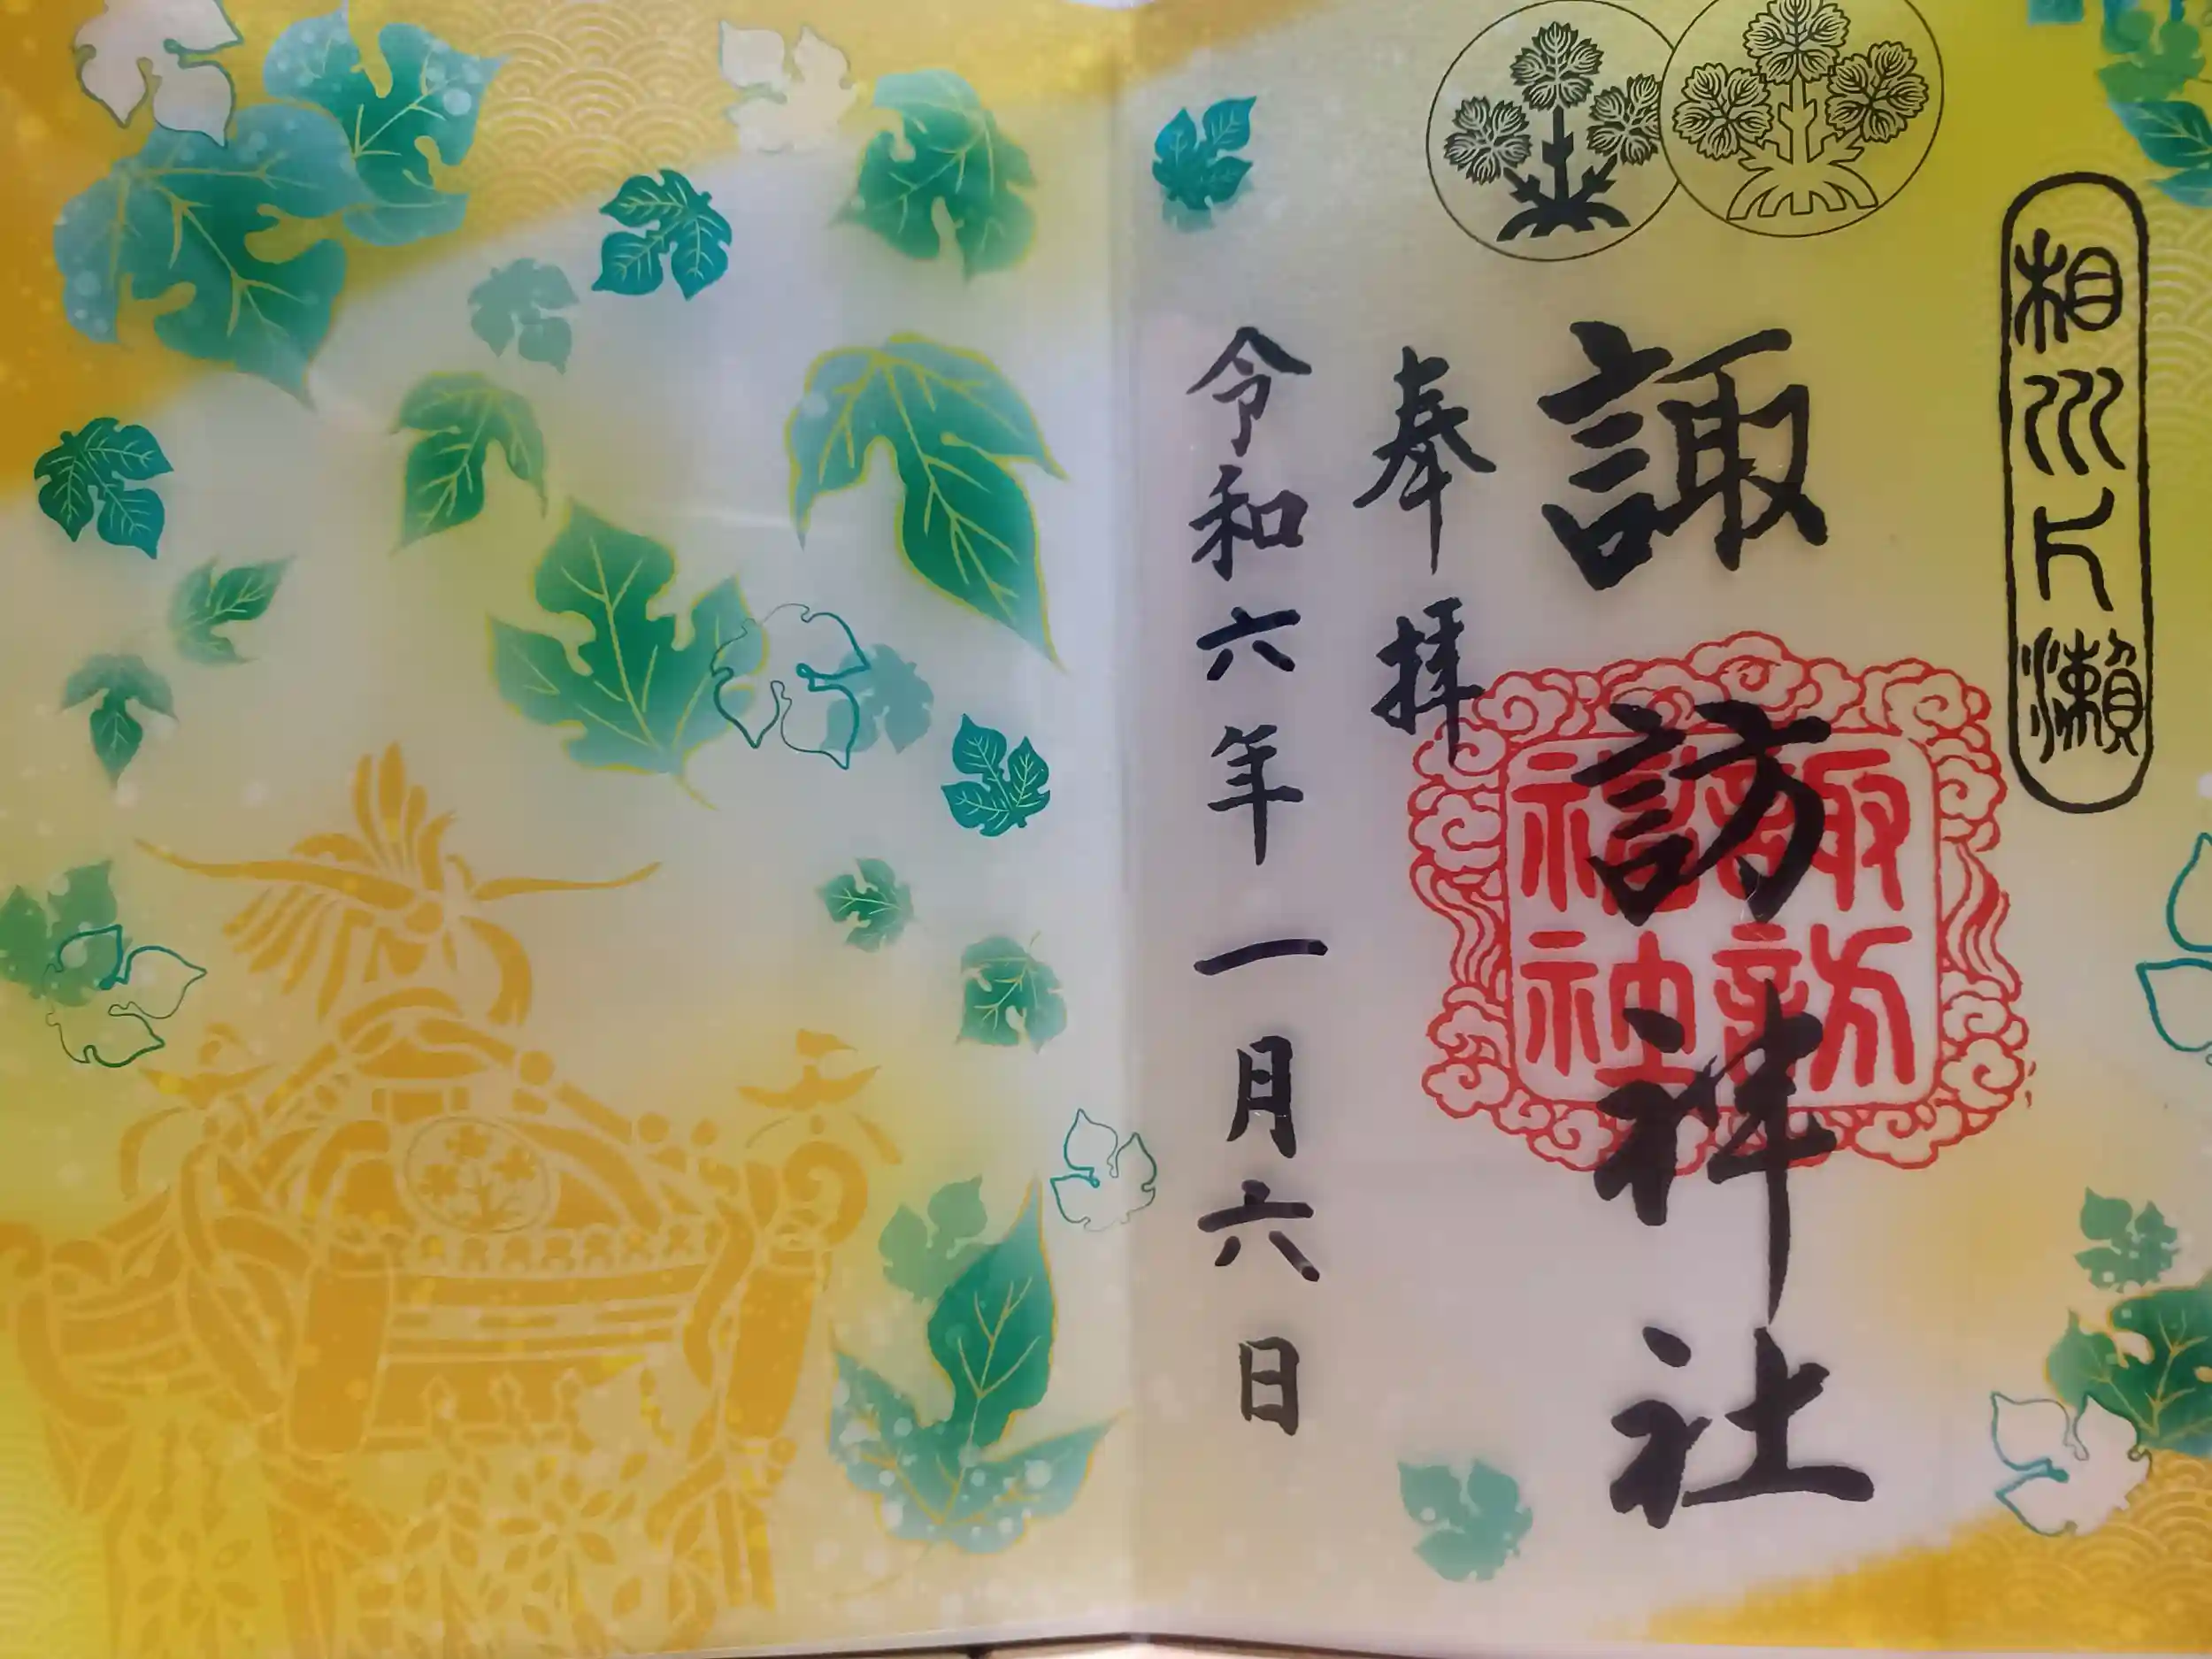 相州片瀬
諏訪神社
奉拝
令和六年一月六日
諏訪
神社